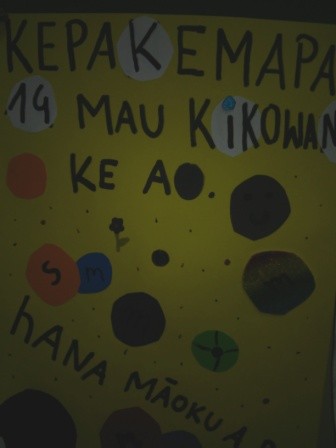 KEPAKEMAPA
14 MAU KiKOWAN
KE AO.
S m
hANA MĀOKU A